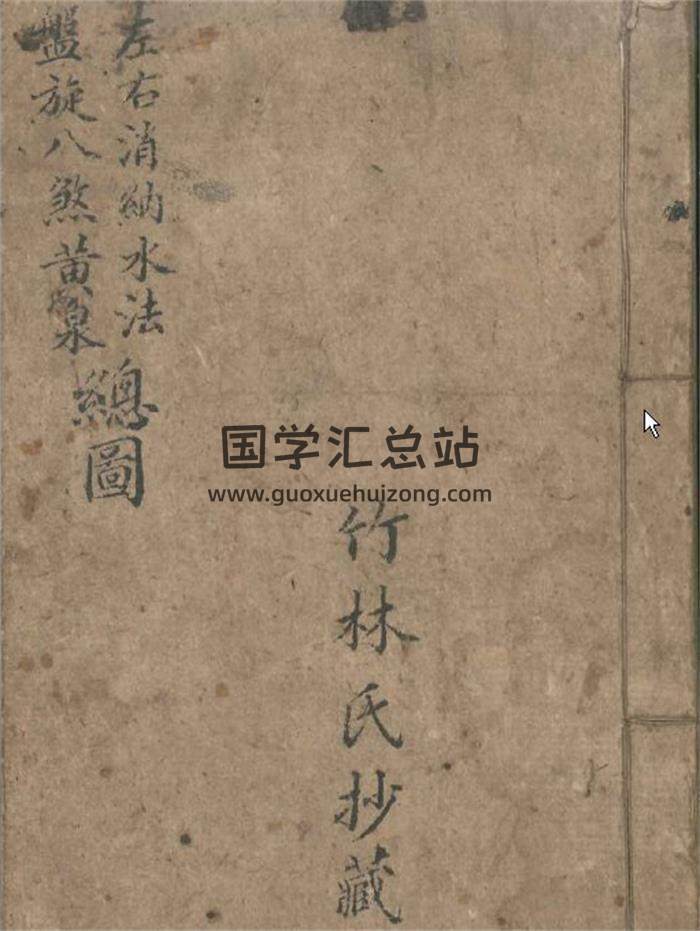 左右消納水法
盤旋八煞黄泉
總圖
国学汇总站
www.guoxuehuizong.com
竹林氏抄藏